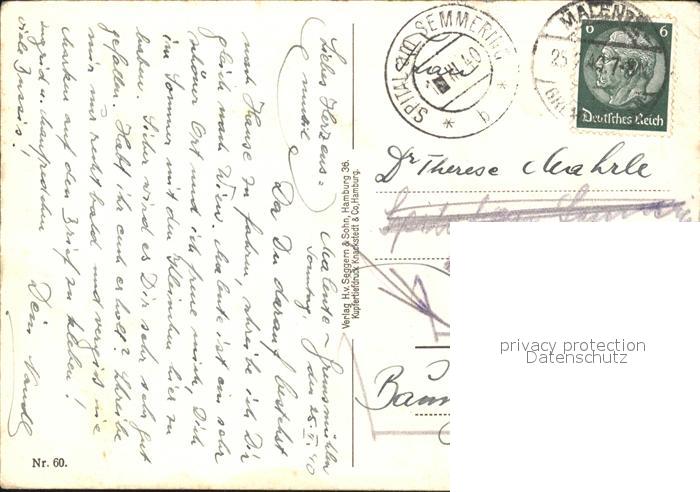 Malente-Gremsmühlen
Sonntag, den 25.
Liebes Herzens-
mutile
Da Du darauf bestehst
nach Hause zu fahren, schreibe ich Dir
gleich nach Wien. Malente ist ein sehr
schöner Ort und ich freue mich, Dich
im Sommer mit den Kleinchen hier zu
haben. Sicher wird es Dir sehr gut
gefallen. Habt ihr euch erholt? Schreibe
mir nur recht bald und vergiss nie
Marken auf den Brief zu kleben!
Ingrid u. Manfred
viele Bussis!
Dein
Nr. 60.
Verlag H.v. Seggern & Sohn, Hamburg 36.
Kupfertiefdruck Knackstedt & Co, Hamburg.
SPITAL AM SEMMERING
40
b
MALENTE
25
6 6
Deutsches Reich
Dr Therese Mahrle
Spital am Semmeri
privacy protection
Datenschutz